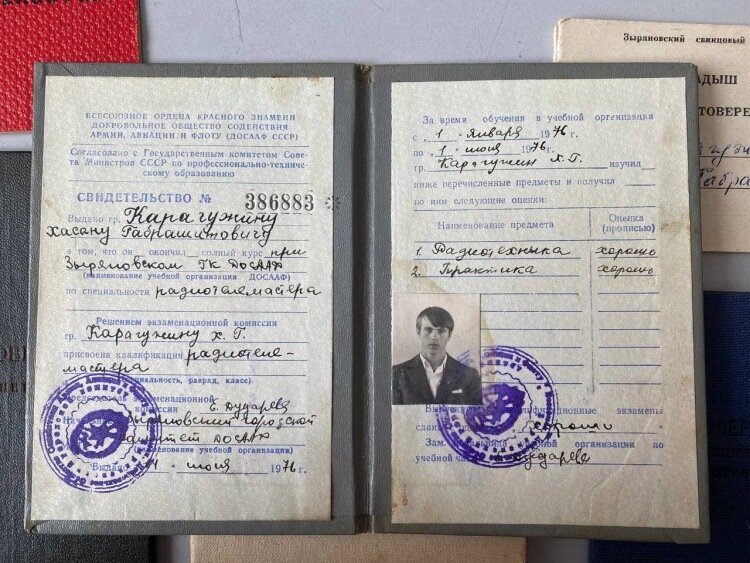 ВСЕСОЮЗНОЕ ОРДЕНА КРАСНОГО ЗНАМЕНИ
ДОБРОВОЛЬНОЕ ОБЩЕСТВО СОДЕЙСТВИЯ
АРМИИ, АВИАЦИИ И ФЛОТУ (ДОСААФ СССР)
Согласовано с Государственным комитетом Сове-
та Министров СССР по профессионально-техниче-
скому образованию
СВИДЕТЕЛЬСТВО № 386883
Выдано гр. Карагужину
Хасану Габрашитовичу
в том, что он окончил полный курс при
Зыряновском ГК ДОСААФ
(наименование учебной организации ДОСААФ)
по специальности радиотелемастера
Решением экзаменационной комиссии
гр. Карагужину Х. Г.
присвоена квалификация радиотеле-
мастера
(специальность, разряд, класс)
Председатель экзаменационной
комиссии Е. Дударева
Зыряновский городской
комитет ДОСААФ
(наименование учебной организации)
Выдано июля 1976 г.
За время обучения в учебной организации
с 1 января 1976 г.
по 1 июля 1976 г.
гр. Карагужин Х. Г. изучил
ниже перечисленные предметы и получил
по ним следующие оценки:
Наименование предмета
Оценка
(прописью)
1. Радиотехника хорошо
2. Практика хорошо
Выпускные квалификационные экзамены
сдал хорошо
Зам. начальника учебной организации по
учебной части Дударева
Зыряновский свинцовый